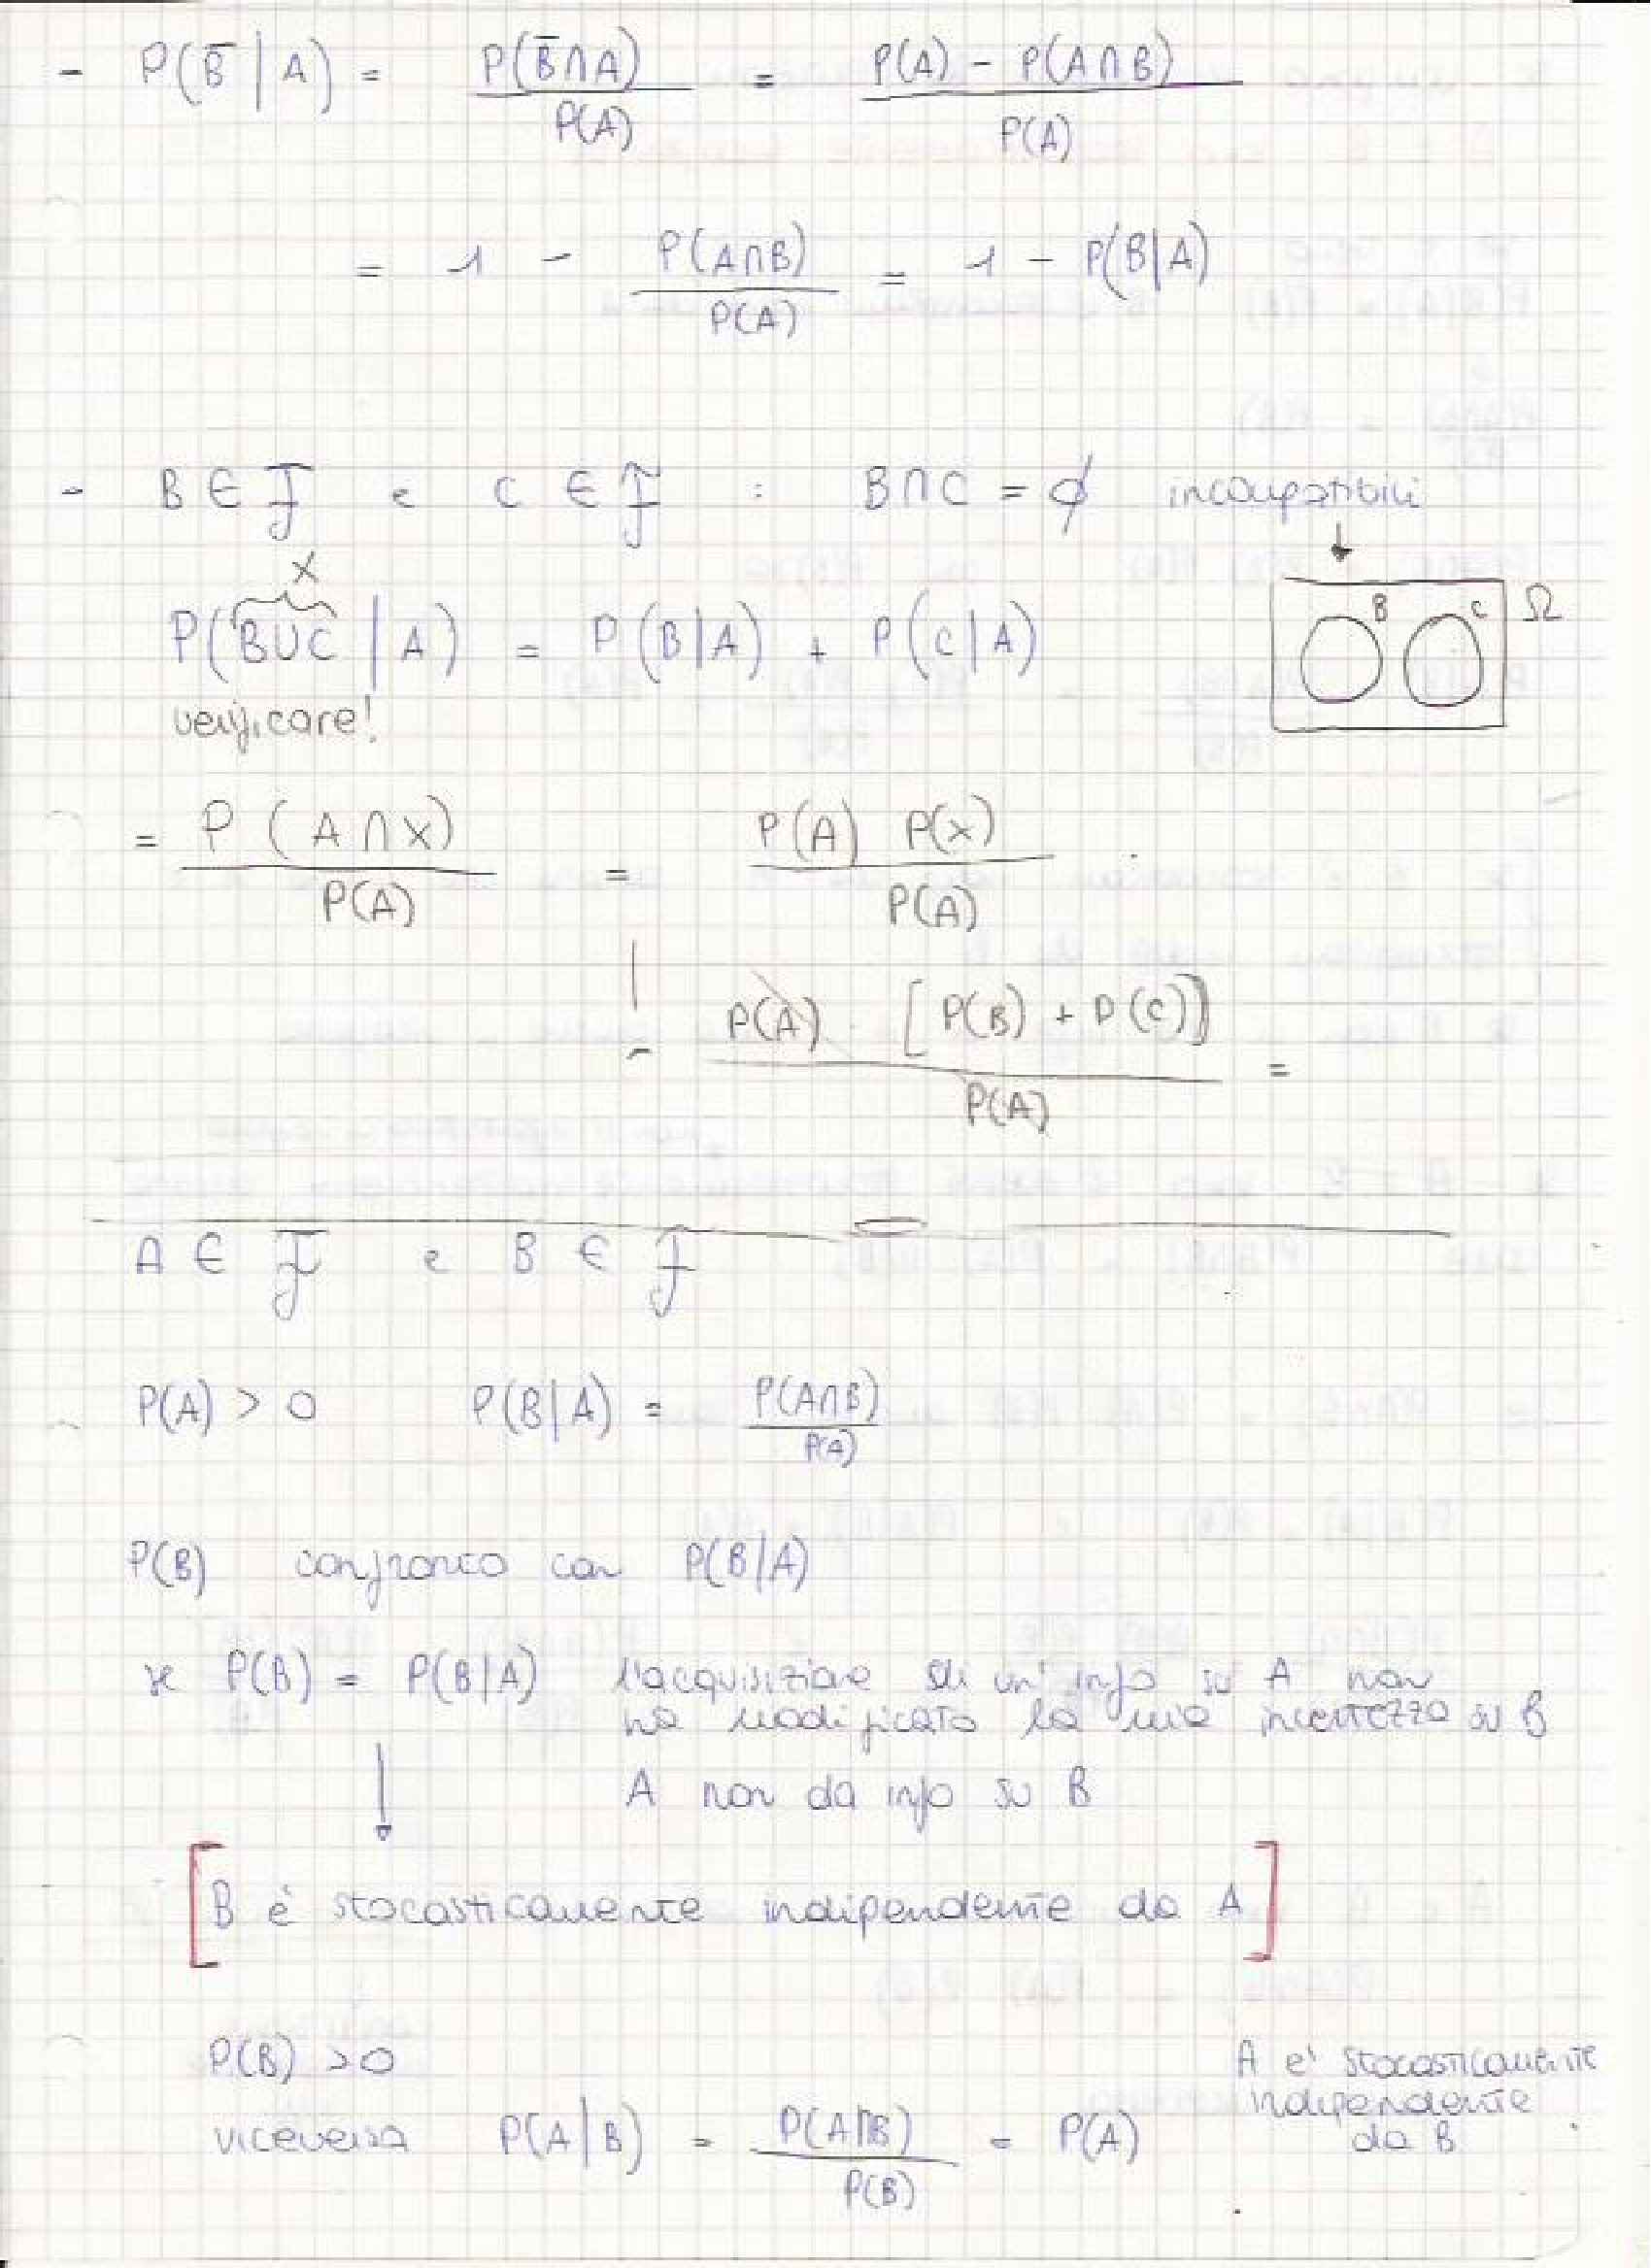 - P(B̅ | A) = P(B̅∩A) / P(A) = P(A) - P(A∩B) / P(A)
= 1 - P(A∩B) / P(A) = 1 - P(B|A)
- B ∈ F e C ∈ F : B∩C = ∅ incompatibili
↓
X
B C Ω
P(B∪C | A) = P(B|A) + P(C|A)
verificare!
= P(A∩X) / P(A) = P(A) P(X) / P(A)
P(A) [P(B) + P(C)] / P(A) =
A ∈ F e B ∈ F
P(A) > 0 P(B|A) = P(A∩B) / P(A)
P(B) confronto con P(B|A)
se P(B) = P(B|A) l'acquisizione di un' info su A non
ha modificato la mia incertezza su B
↓ A non da info su B
[B è stocasticamente indipendente da A]
P(B) >0
viceversa P(A|B) = P(A∩B) / P(B) = P(A)
A e' stocasticamente
indipendente
da B